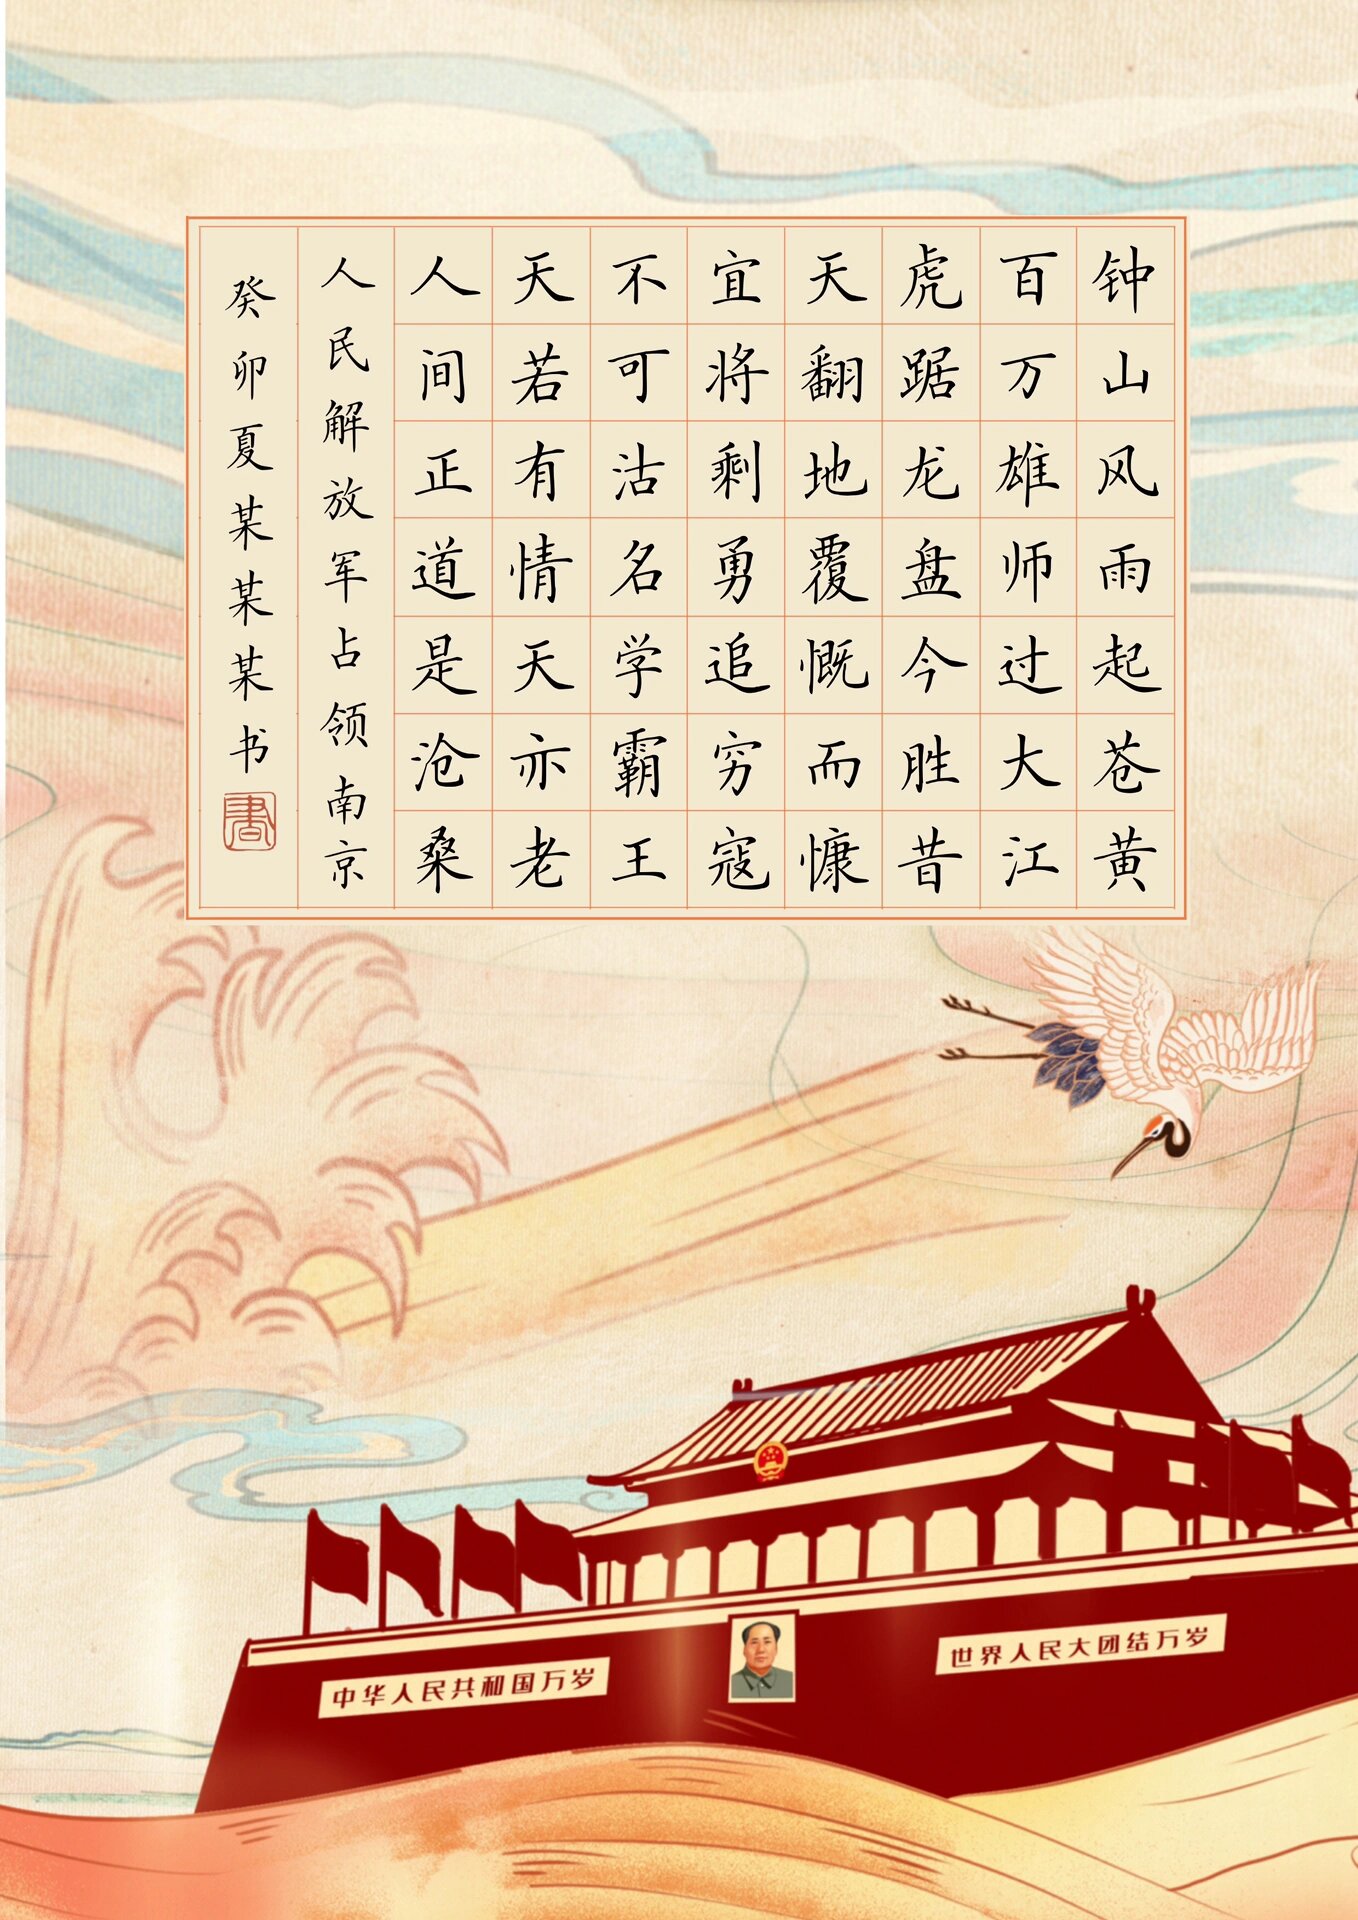 钟山风雨起苍黄
百万雄师过大江
虎踞龙盘今胜昔
天翻地覆慨而慷
宜将剩勇追穷寇
不可沽名学霸王
天若有情天亦老
人间正道是沧桑
人民解放军占领南京
癸卯夏某某某书
書
中华人民共和国万岁
世界人民大团结万岁